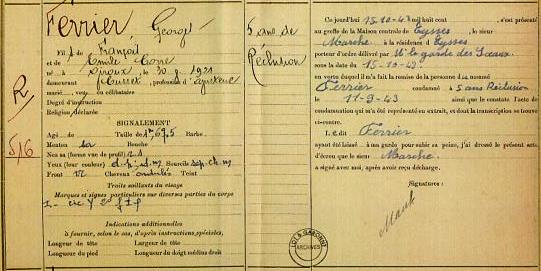 Ferrier, Georges
Fils de François
et de
né à , le 30.9.1921
demeurant , profession d'
marié, veuf ou célibataire
Degré d'instruction
Religion déclarée
SIGNALEMENT
Agé de Taille de 1m 69,5 Barbe
Menton Bouche
Nez sa (forme vue de profil)
Yeux (leur couleur) Sourcils
Front Cheveux ondulés Teint
Traits saillants du visage
Marques et signes particuliers sur diverses parties du corps
Indications additionnelles
à fournir, selon le cas, d'après instructions spéciales,
Longueur de tête Largeur de tête
Longueur du pied Longueur du doigt médius droit
R
516
5 ans de
Réclusion
Ce jourd'hui 15-10-43 mil huit cent , s'est présenté
au greffe de la Maison centrale de Eysses, le sieur
Marche à la résidence d'Eysses
porteur d'ordre délivré par M. le garde des Sceaux
sous la date du 15-10-43
en vertu duquel il m'a fait la remise de la personne d nommé
Ferrier condamné à 5 ans Réclusion
le 11-9-43 ainsi que le constate l'acte de
condamnation qui m'a été représenté en extrait, et dont la transcription se trouve
ci-contre.
Ledit Ferrier
ayant été laissé à ma garde pour subir sa peine, j'ai dressé le présent acte
d'écrou que le sieur Marche
a signé avec moi, après avoir reçu décharge.
Signatures :
LOT & GARONNE
ARCHIVES